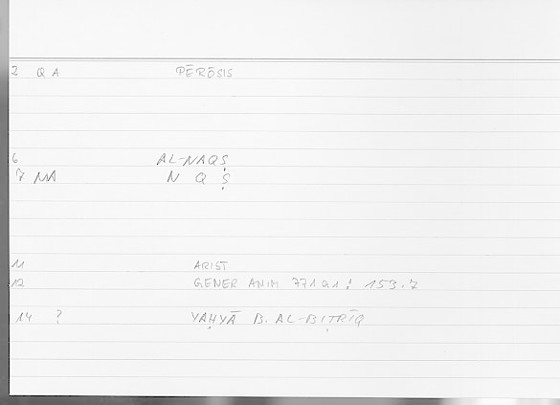 2 QA PĒRĒSIS
6 AL-NAQṢ
7 MA N Q Ṣ
11 ARIST
12 GENER ANIM 771a1 : 153.7
14 ? YAḤYĀ B. AL-BIṬRĪQ